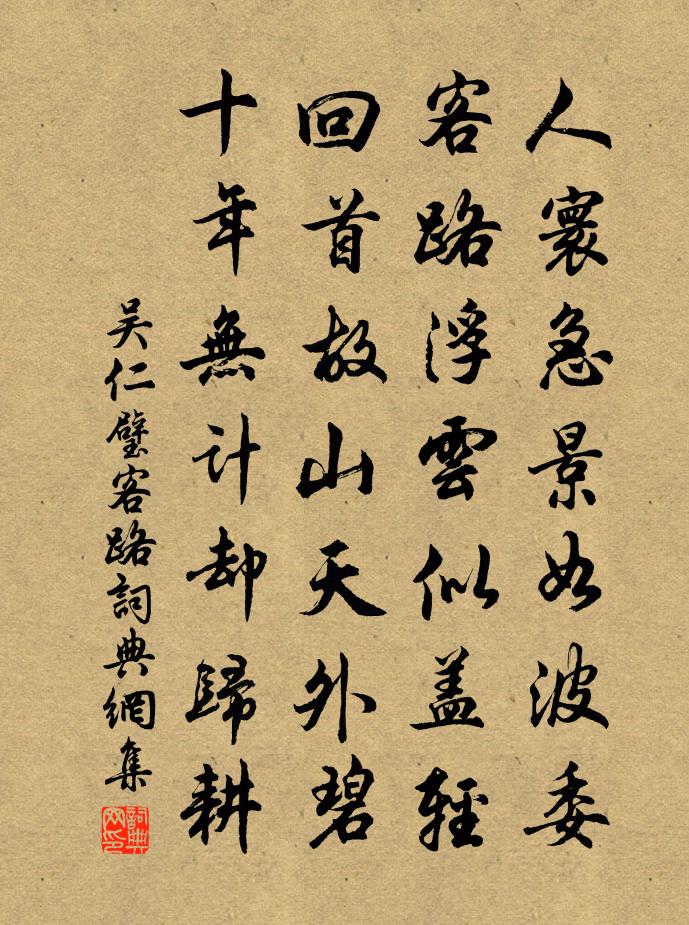 人寰急景如波委
客路浮雲似盖輕
回首故山天外碧
十年無計却歸耕
吴仁璧客路詞典網集
詞典網印